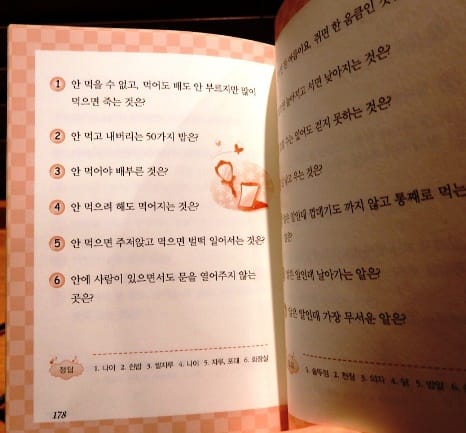 1 안 먹을 수 없고, 먹어도 배도 안 부르지만 많이
먹으면 죽는 것은?
2 안 먹고 내버리는 50가지 밥은?
3 안 먹어야 배부른 것은?
4 안 먹으려 해도 먹어지는 것은?
5 안 먹으면 주저앉고 먹으면 벌떡 일어서는 것은?
6 안에 사람이 있으면서도 문을 열어주지 않는
곳은?
정답 1. 나이 2. 쉰밥 3. 쌀자루 4. 나이 5. 자루, 포대 6. 화장실
178
쥐면 한 움큼인
서면 낮아지는 것은?
있어도 걷지 못하는 것은?
우는 것은?
알인데 껍데기도 까지 않고 통째로 먹는
알은?
알인데, 날아가는 알은?
알인데 가장 무서운 알은?
2. 천정 3. 의자 4. 닭 5. 밥알 6.